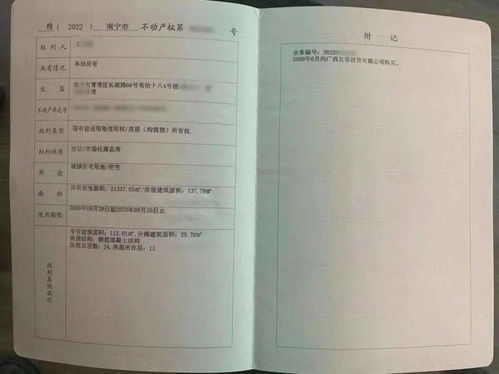 桂（2022）南宁市 不动产权第 号
权利人 王
共有情况 单独所有
坐落 南宁市青秀区长湖路66号英伦十八4号楼
不动产单元号
权利类型 国有建设用地使用权/房屋（构筑物）所有权
权利性质 出让/市场化商品房
用途 城镇住宅用地/住宅
面积 共有宗地面积：21337.03㎡/房屋建筑面积：137.79㎡
使用期限 2000年08月29日起2070年08月29日止
权利其他状况
专有建筑面积：112.01㎡，分摊建筑面积：25.78㎡
房屋结构：钢筋混凝土结构
房屋总层数：24，房屋所在层：11
附记
业务编号：2022
2009年6月向广西友容投资有限公司购买。